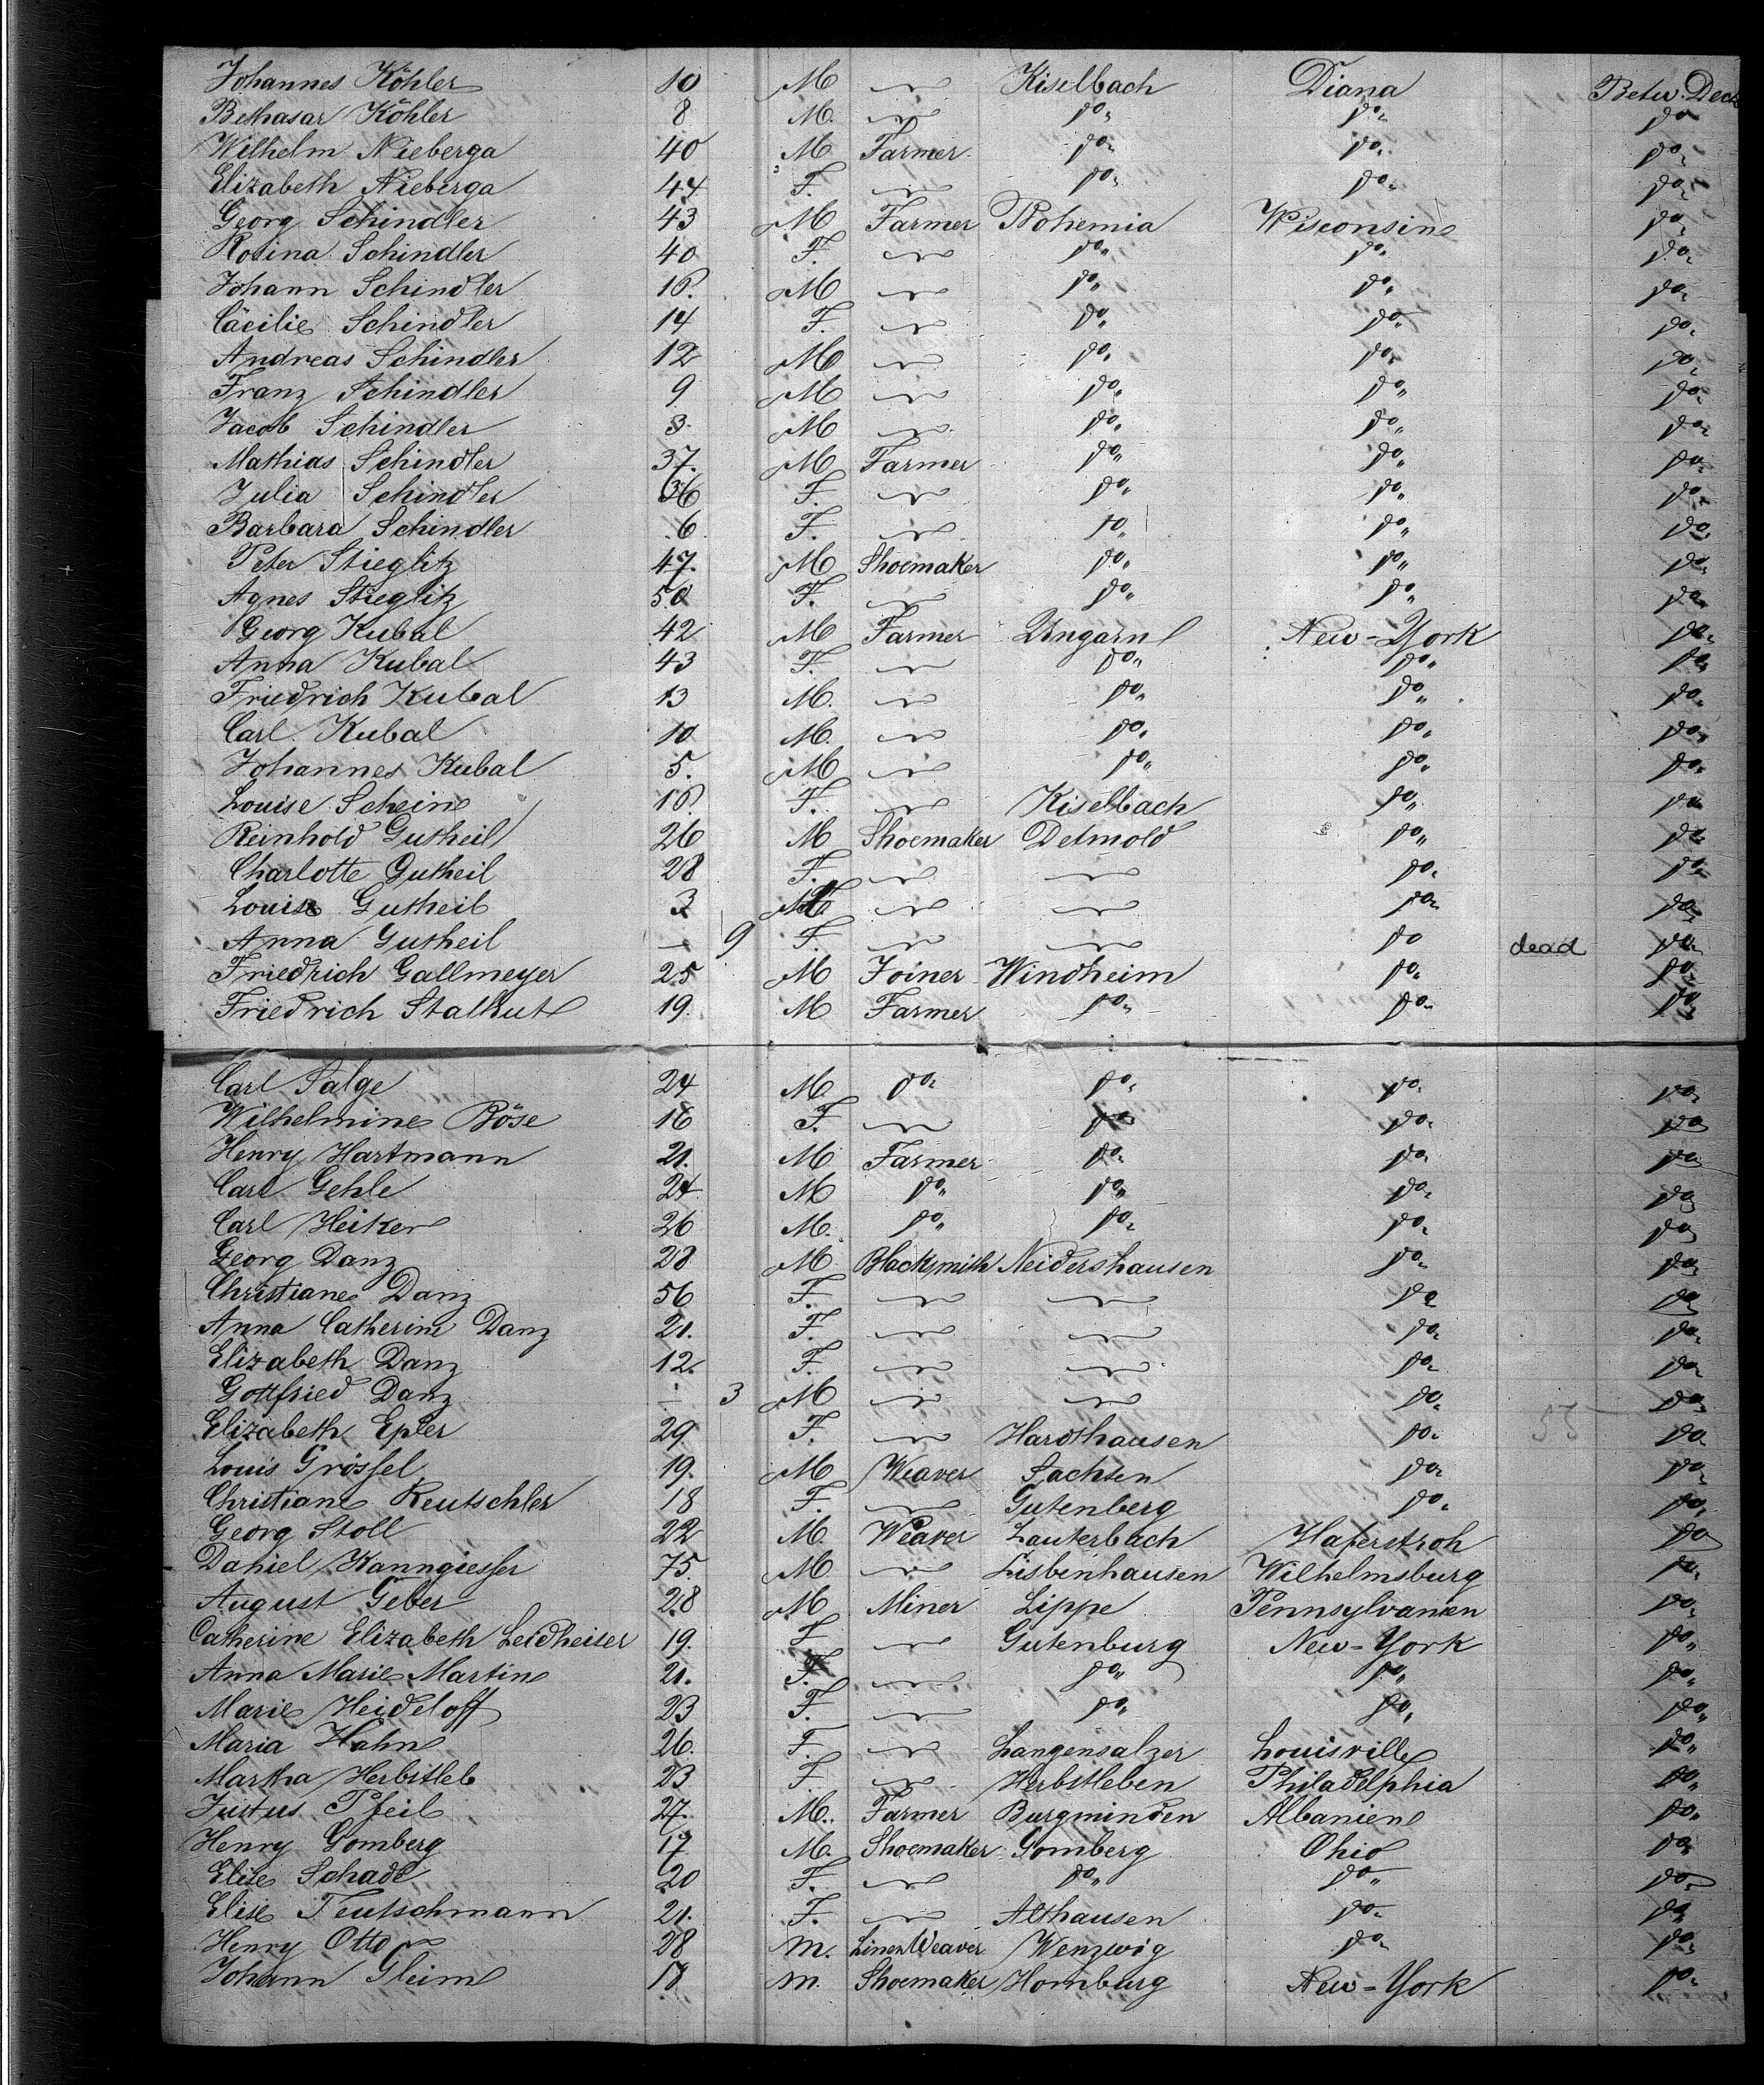 Johannes Köhler 10 M Kiselbach Diana Betw. Deck
Bethasar Köhler 8 M. do. do. do
Wilhelm Nieberga 40 M Farmer do. do. do.
Elizabeth Nieberga 44 F. do. do. do.
Georg Schindler 43 M Farmer Bohemia Wisconsin do.
Rosina Schindler 40 F. do. do. do.
Johann Schindler 16. M do. do. do.
Cäcilie Schindler 14 F. do. do. do.
Andreas Schindler 12 M do. do. do.
Franz Schindler 9 M do. do. do.
Jacob Schindler 3. M do. do. do.
Mathias Schindler 37. M Farmer do. do. do.
Julia Schindler 36 F. do. do. do.
Barbara Schindler 6 F. do. do. do.
Peter Stieglitz 47. M Shoemaker do. do. do.
Agnes Stieglitz 50 F. do. do. do.
Georg Kubal 42 M Farmer Ungarn New-York do.
Anna Kubal 43 F. do. do. do.
Friedrich Kubal 13 M. do. do. do.
Carl Kubal 10 M. do. do. do.
Johannes Kubal 5. M do. do. do.
Louise Schein 16 F. Kiselbach do. do.
Reinhold Gutheil 26 M Shoemaker Detmold do. do.
Charlotte Gutheil 28 F. do. do.
Louise Gutheil 3 do. do.
Anna Gutheil — 9 F. do dead do.
Friedrich Gallmeyer 25 M Joiner Windheim do. do.
Friedrich Stalhut 19. M Farmer do. do. do.
Carl Salge 24 M. do. do. do. do.
Wilhelmine Böse 16 F. do do. do
Henry Hartmann 21. M Farmer do. do. do
Carl Gehle 24 M do. do. do. do
Carl Heiker 26 M. do. do. do. do
Georg Danz 28 M Blacksmith Neidershausen do. do
Christiane Danz 56 F. do do
Anna Catherine Danz 21. F. do. do.
Elizabeth Danz 12. F. do. do
Gottfried Danz — 3 M do. do.
Elizabeth Epler 29 F. Hardthausen do. do
Louis Grössel 19. M Weaver Sachsen do. do.
Christiane Reutschler 18 F. Gutenberg do. do.
Georg Stoll 22 M. Weaver Lauterbach Haferstroh do
Daniel Kanngiesser 75. M. Lisbinhausen Wilhelmsburg do.
August Geber 28 M Miner Lippe Pennsylvanien do.
Catherine Elizabeth Leidheiser 19. F Gutenburg New-York do.
Anna Marie Martin 21. F. do. do. do.
Marie Heideloff 23 F. do. do. do.
Maria Hahn 26. F. Langensalzer Louisville do.
Martha Herbstleb 23 F. Herbstleben Philadelphia do.
Justus Pfeil 27. M. Farmer Burgminden Albanien do.
Henry Gomberg 17 M. Shoemaker Gomberg Ohio do
Elise Schade 20 F. do. do. do.
Elise Teutschmann 21. F. Althausen do. do
Henry Otto 28 M. Linen Weaver Wenzwig do. do.
Johann Gleim 18 M. Shoemaker Homburg New-York do.